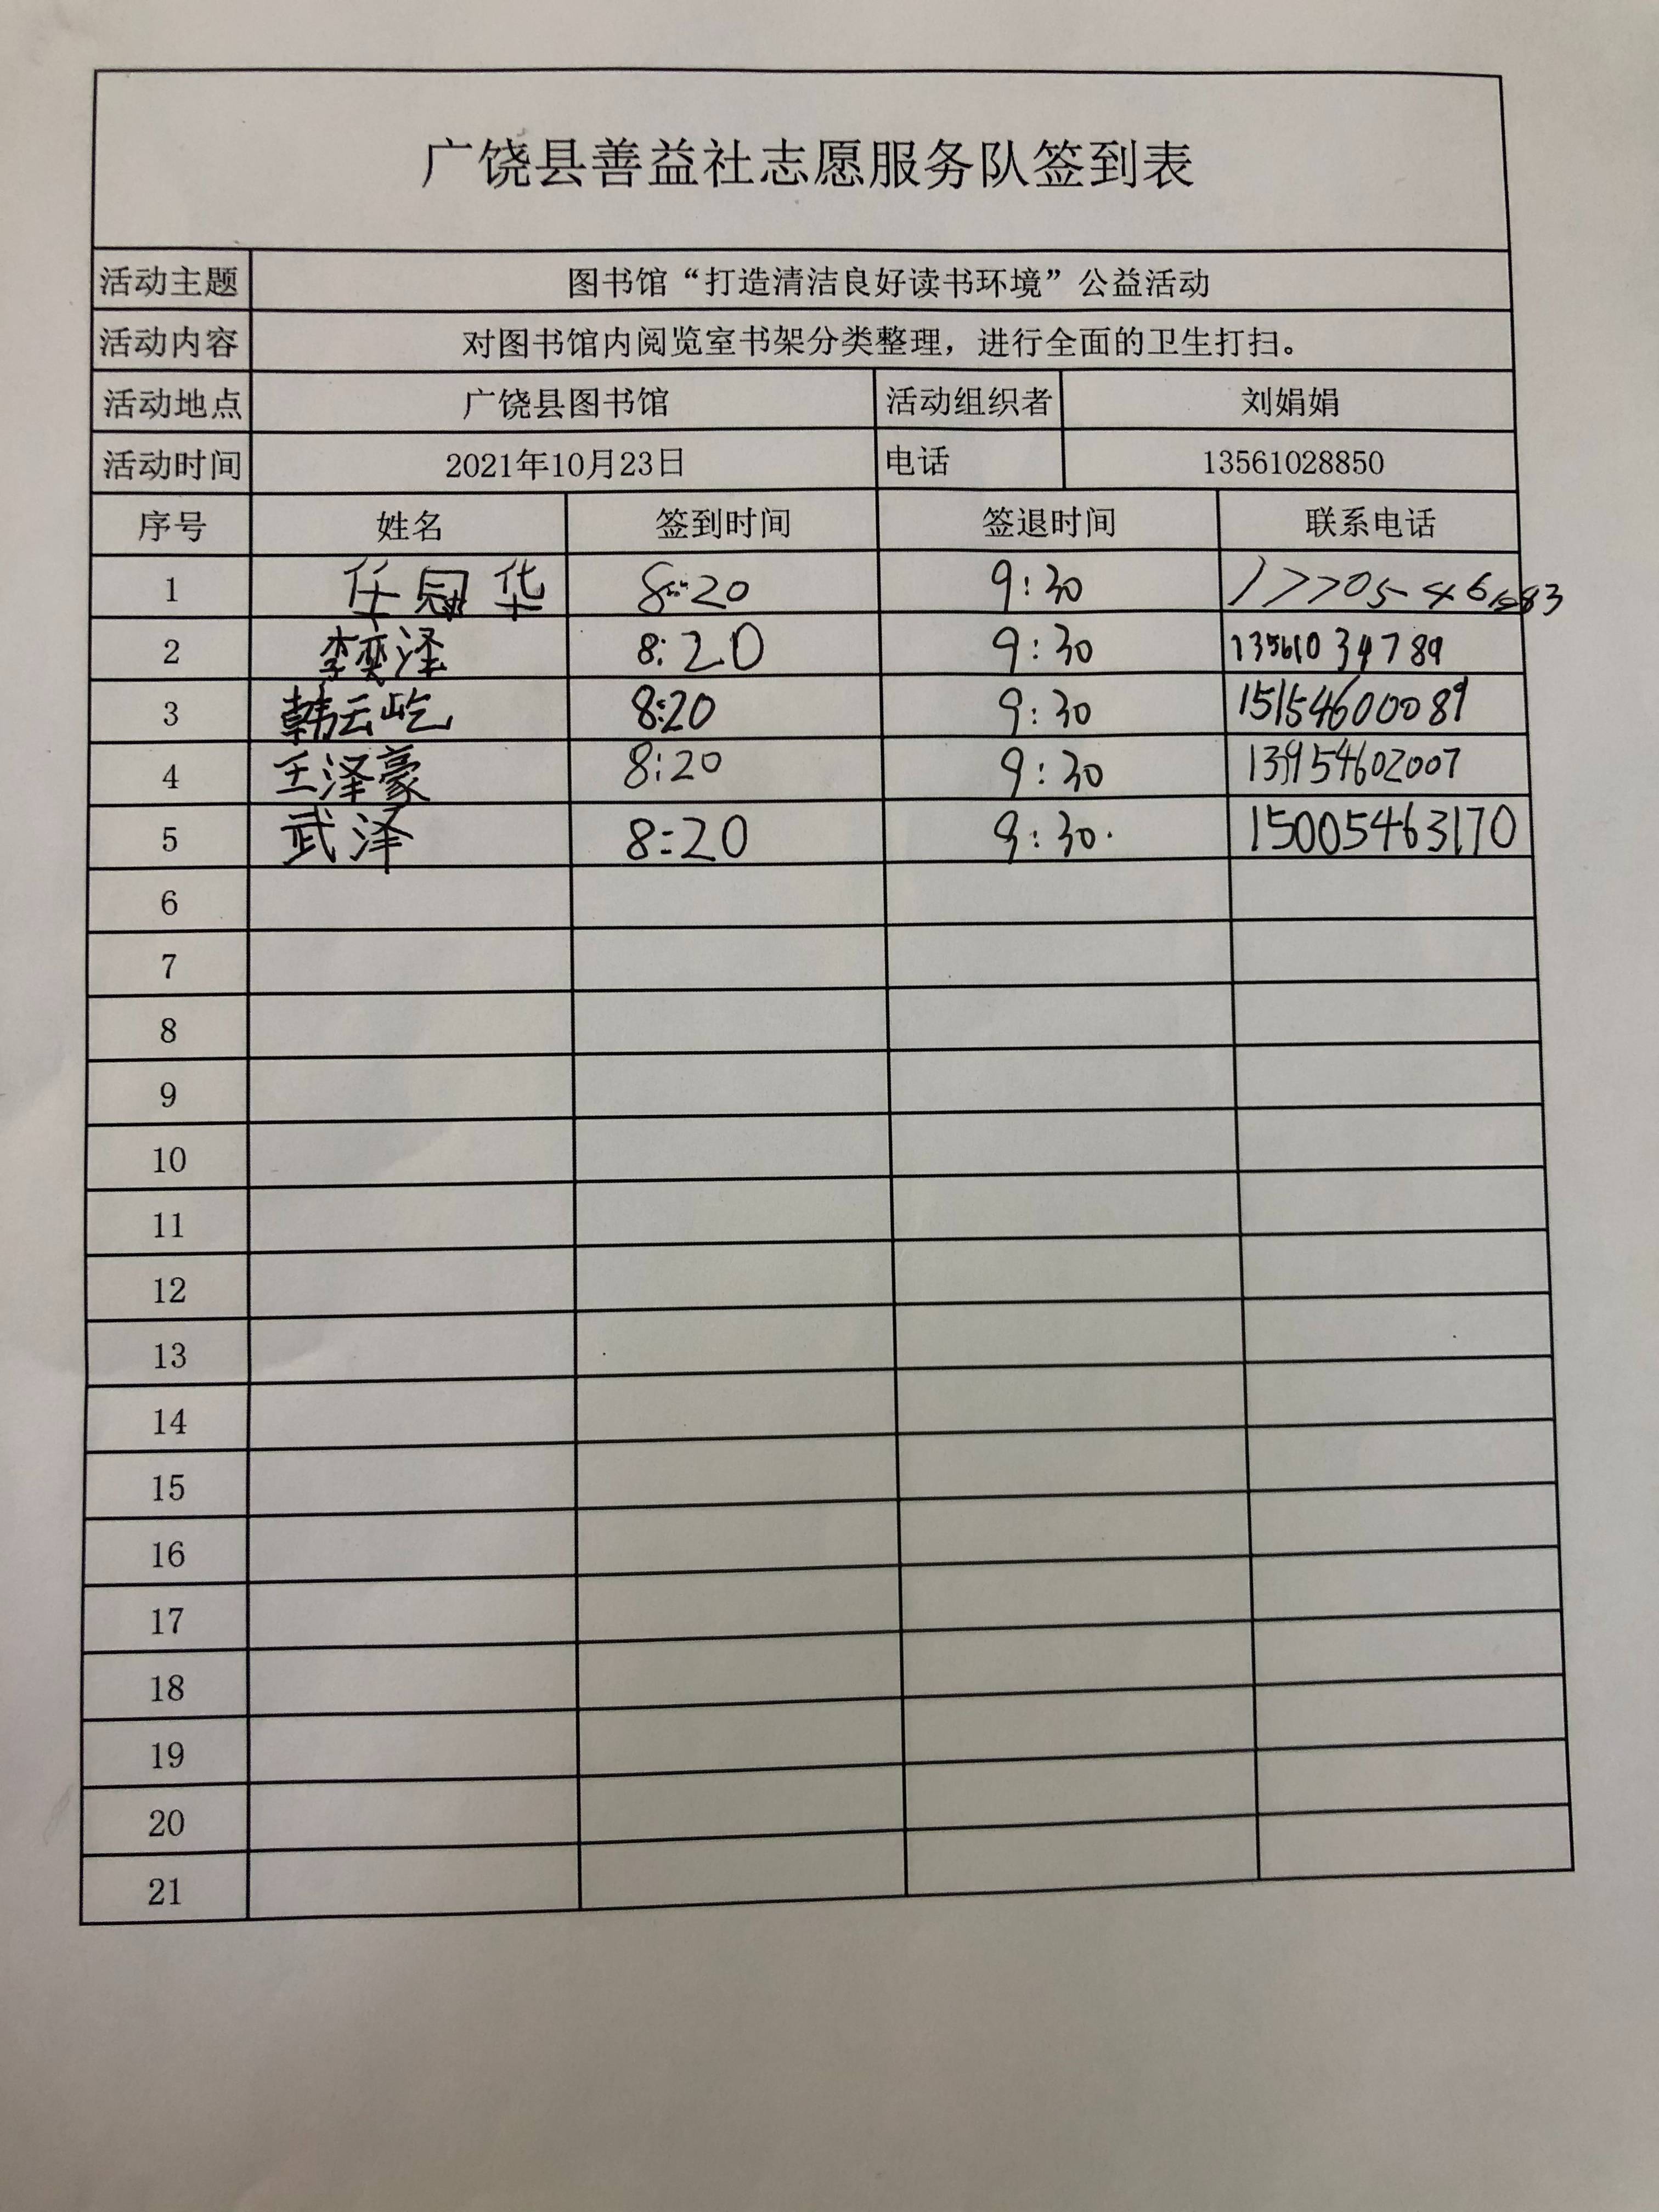 广饶县善益社志愿服务队签到表
活动主题 图书馆“打造清洁良好读书环境”公益活动
活动内容 对图书馆内阅览室书架分类整理，进行全面的卫生打扫。
活动地点 广饶县图书馆 活动组织者 刘娟娟
活动时间 2021年10月23日 电话 13561028850
序号 姓名 签到时间 签退时间 联系电话
1 任冠华 8:20 9:30
2 李奕泽 8:20 9:30 13561034789
3 韩云屹 8:20 9:30 15154600089
4 王泽豪 8:20 9:30 13954602007
5 武泽 8:20 9:30. 15005463170
6
7
8
9
10
11
12
13
14
15
16
17
18
19
20
21